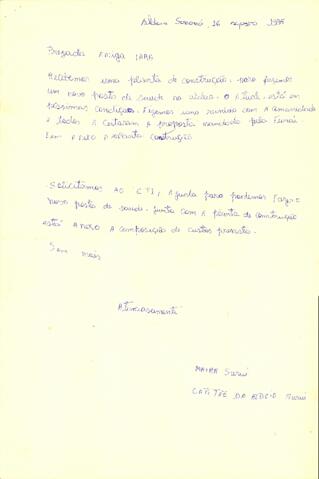 Aldeia Sororó, 16 agosto 1995
Prezada Amiga IARA
Recebemos uma planta de construção para fazermos
um novo posto de saude na aldeia. O Atual está em
péssimas condições. Fizemos uma reunião com A comunidade
e todos A ceitaram A proposta mandada pela Funai
Em A
Solicitamos AO CTI, Ajuda para podermos fazer o
novo posto de saude. junto com A planta de construção
está Anexo A composição de custos previsto.
Sem mais
Atenciosamente
MAIRA Surui
CAPITÃO DA ALDEIA Surui